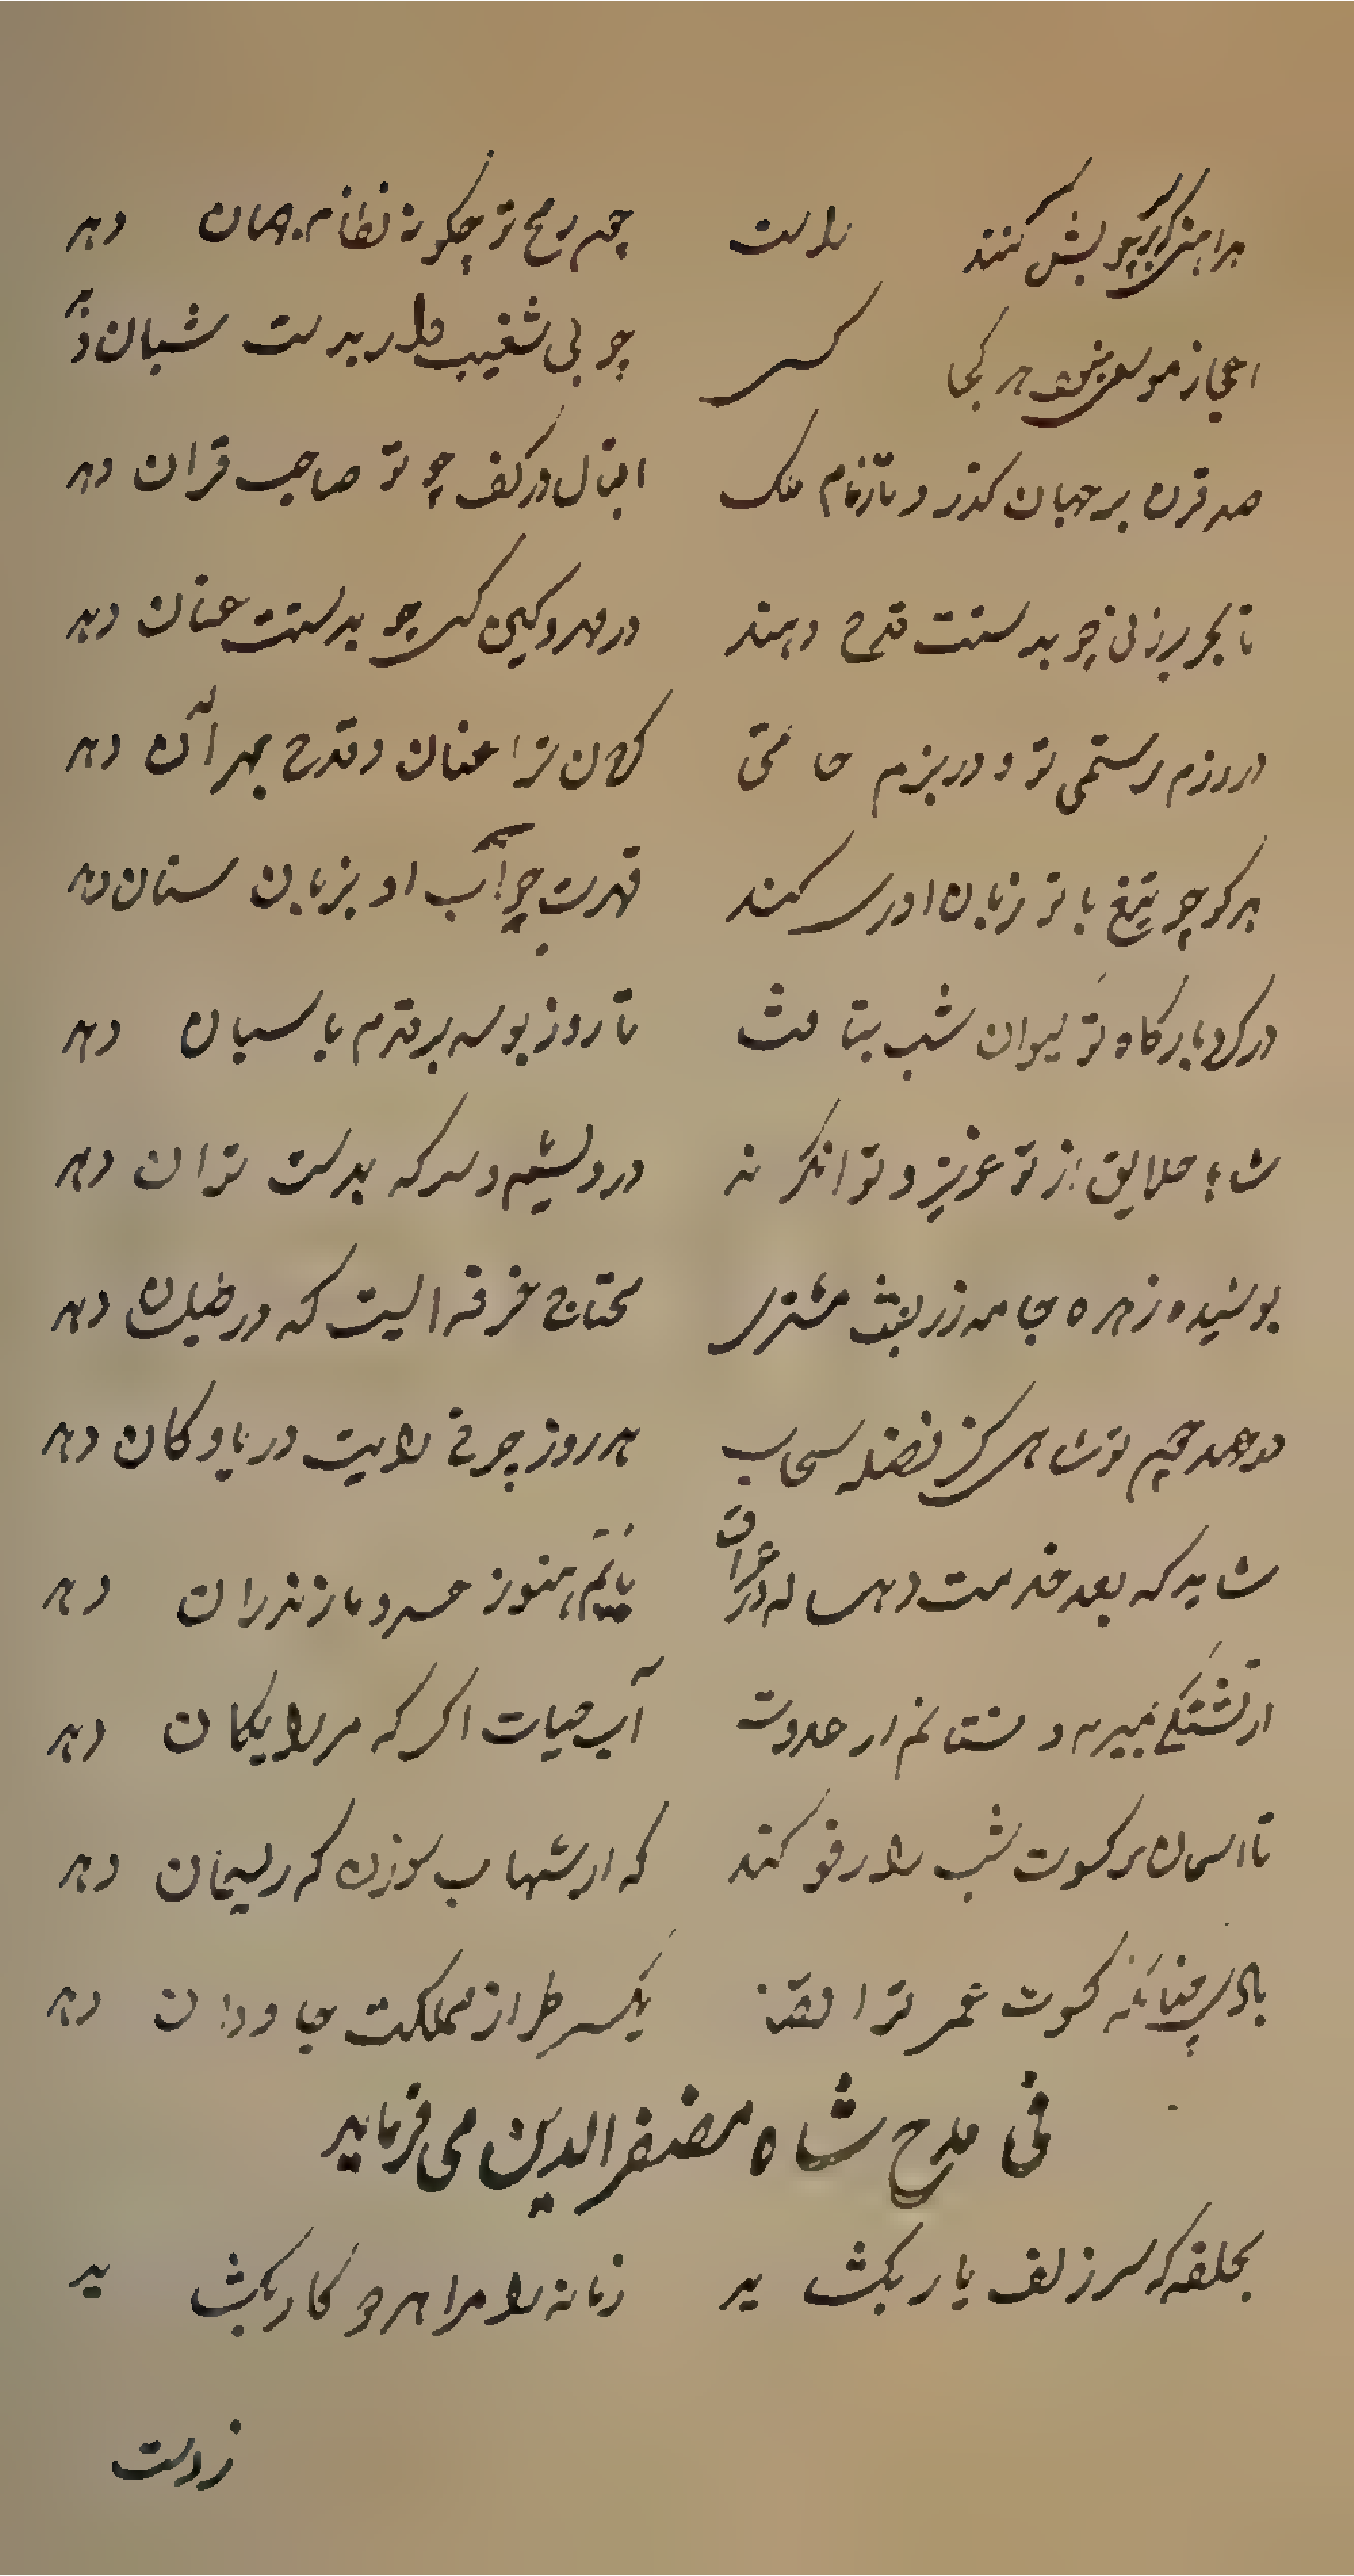 هر آهنی که چوبش کنند راست چرم رمح تو چگونه نظام جهان دهد
اعجاز موسوی نبود هر کجا کسی چوبی شعیب وار بدست شبان دهد
صد قرن بر جهان گذرد تا زمام ملک اقبال در کف چو تو صاحب قران دهد
تا بحر بر زنی چو بدستت قدح دهند در مهر و کین کسی چو بدستت عنان دهد
در رزم رستمی تو و در بزم حاتمی کان ترا عنان و قدح بهر آن دهد
هر کو چو تیغ با تو زبان آوری کند قهرت چو آب او بزبان سنان دهد
درگاه بارگاه تو کیوان شب بتافت تا روز بوسه بر قدم پاسبان دهد
شاها خلایق از تو عزیز و توانگرند درویشیم و سر که بدست توان دهد
پوشیده زهره جامه زربفت مشتری محتاج خرقه ایست که در طیلسان دهد
در عهد چشم تو شاها کز فضله سحاب هر روز چرخ راتب دریا و کان دهد
شاید که بعد خدمت ده ساله در عراق نانم هنوز خسرو مازندران دهد
از تشنگی بمیرم و نستانم از عدوت آب حیات اگر که مرا رایگان دهد
تا آسمان بر کسوت شب را رفو کند گه از شهاب سوزن گه ریسمان دهد
بادا چنانکه کسوت عمر ترا قضا یکسر طراز مملکت جاودان دهد
فی مدح شاه مضفرالدین می فرماید
بحلقه که سر زلف یار بکشاید زمانه را مرا هر دو کار بکشاید
زدست